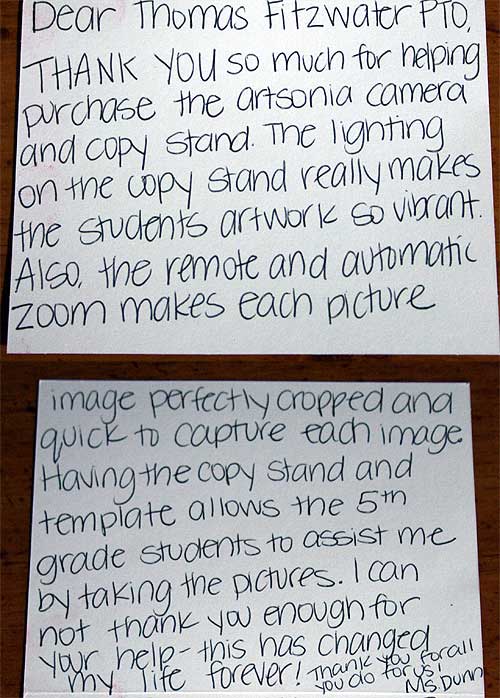 Dear Thomas Fitzwater PTO,
THANK YOU so much for helping
purchase the artsonia camera
and copy stand. The lighting
on the copy stand really makes
the students artwork so vibrant.
Also, the remote and automatic
zoom makes each picture
image perfectly cropped and
quick to capture each image.
Having the copy stand and
template allows the 5th
grade students to assist me
by taking the pictures. I can
not thank you enough for
your help - this has changed
my life forever! Thank you for all
you do for us!
Ms Dunn